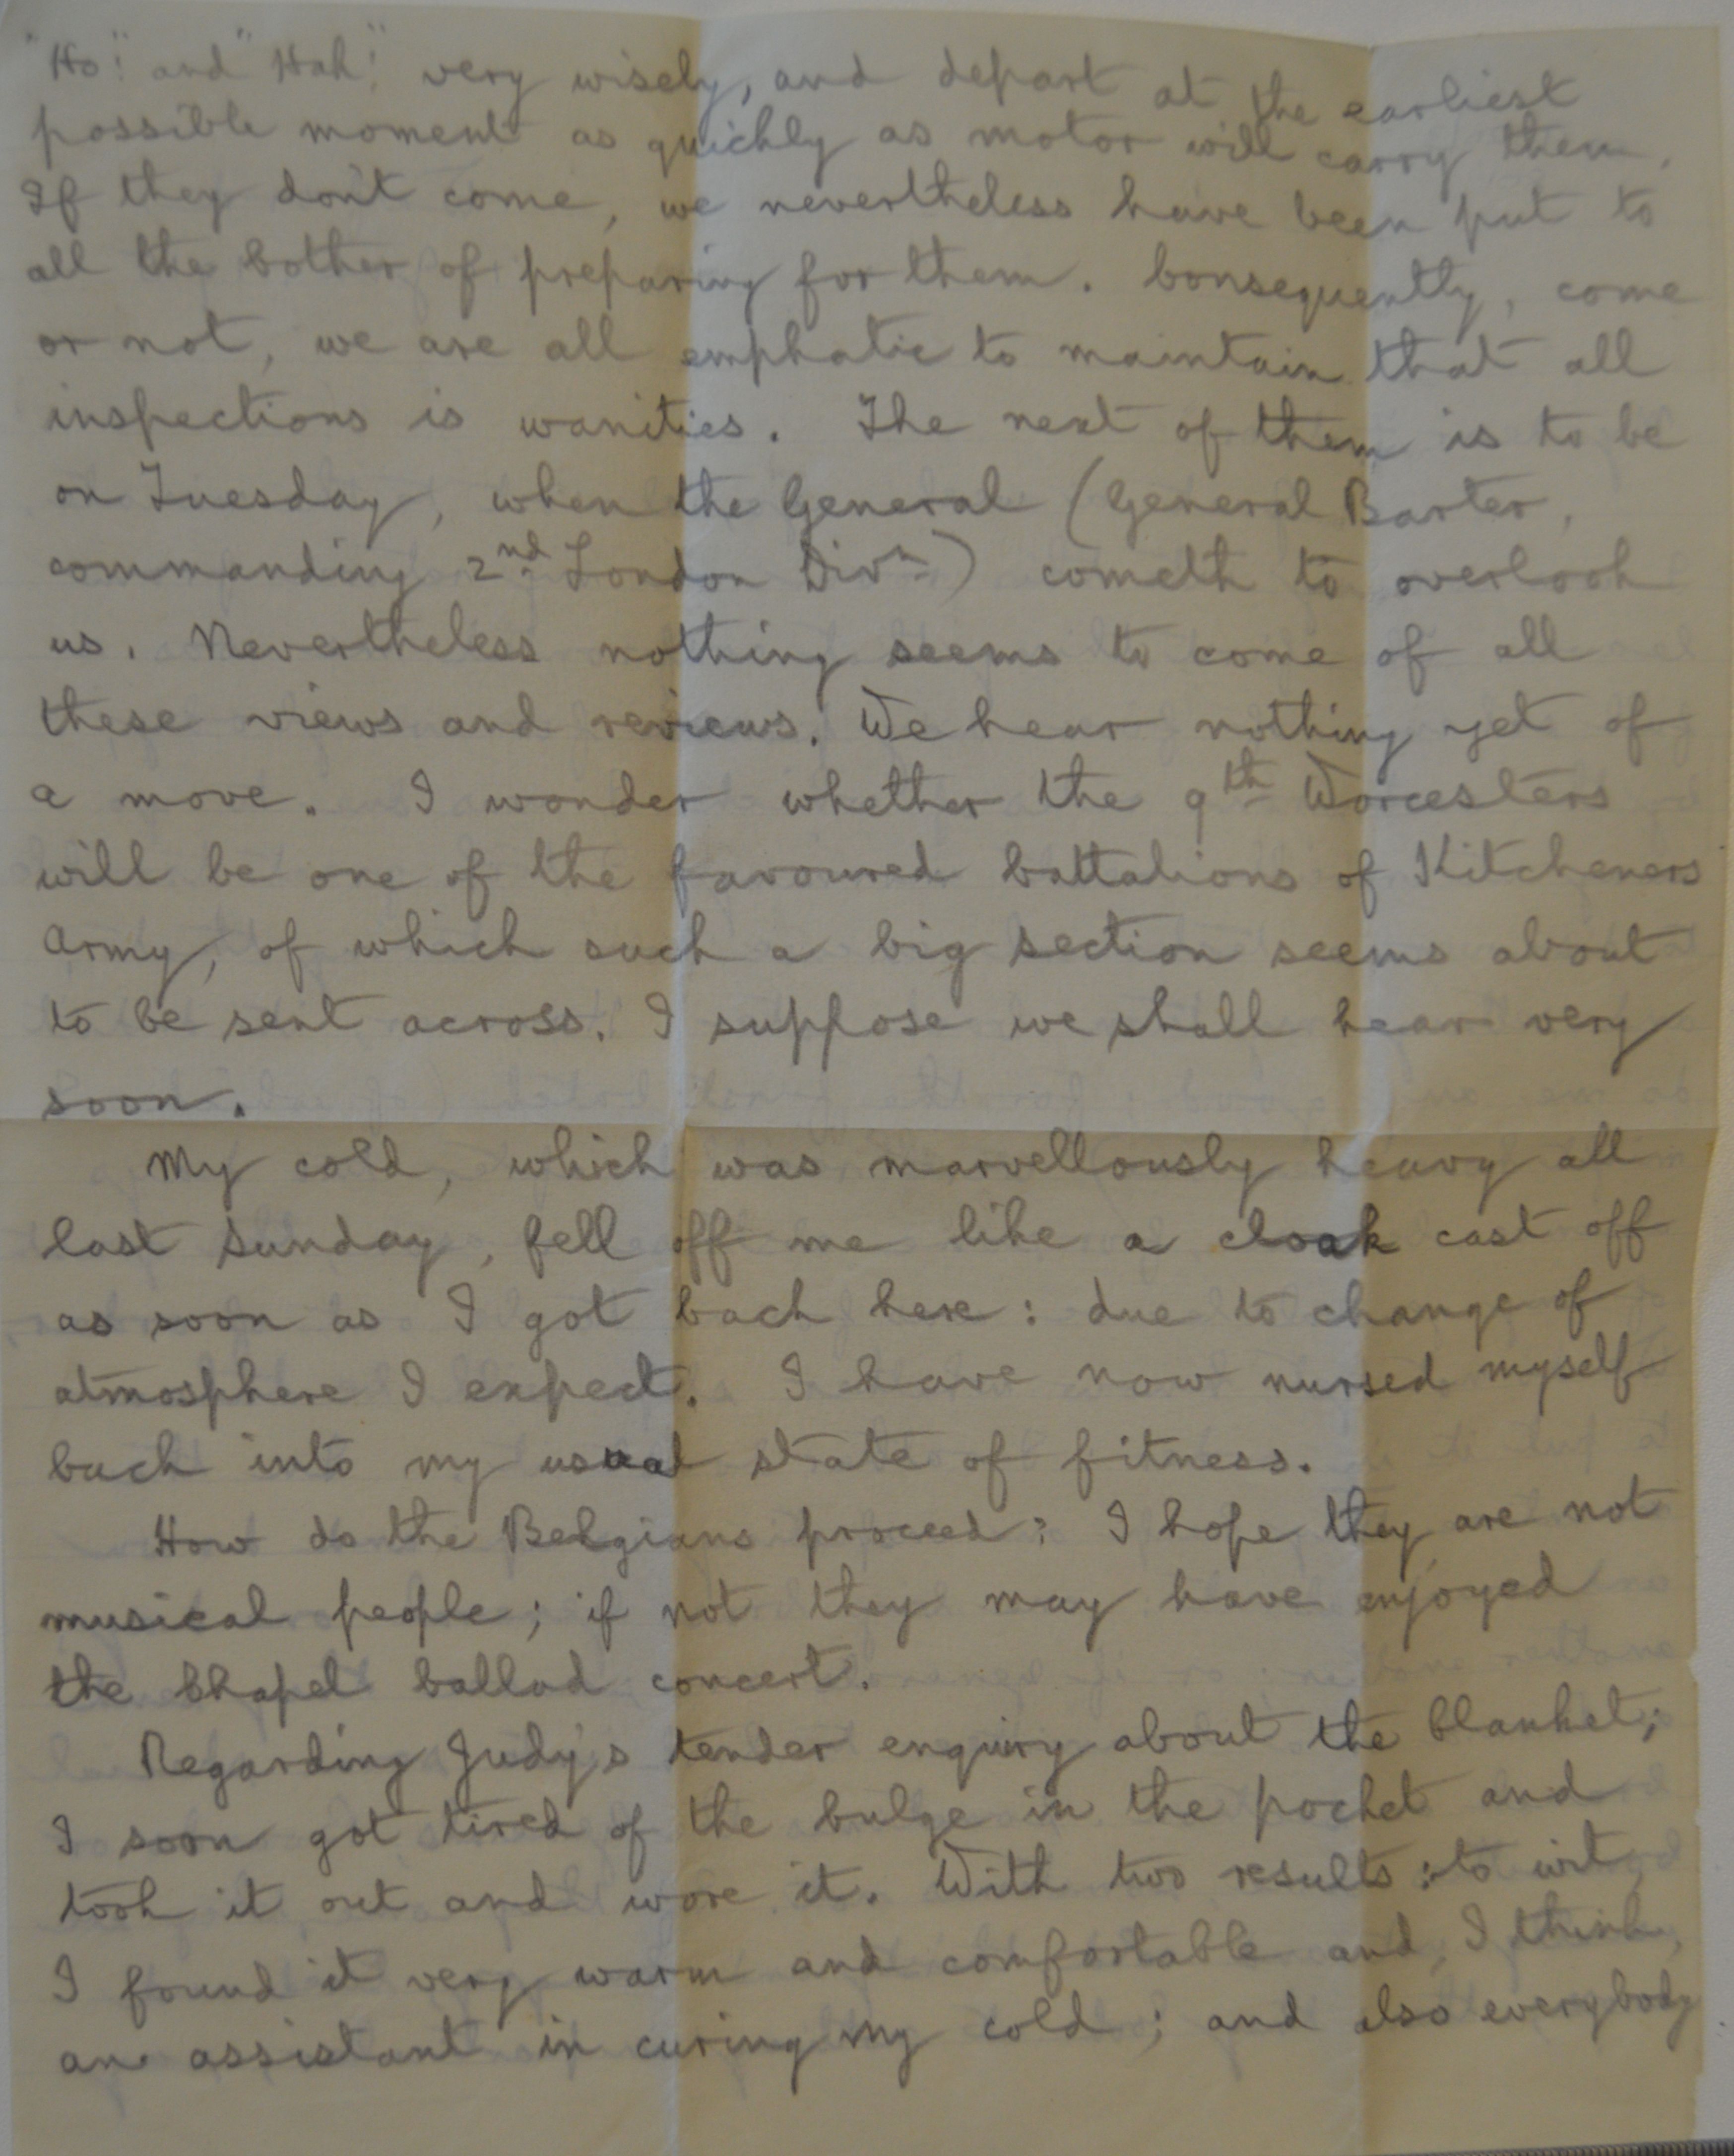 "Ho!" and "Hah!" very wisely, and depart at the earliest
possible moment as quickly as motor will carry them.
If they don't come, we nevertheless have been put to
all the bother of preparing for them. Consequently, come
or not, we are all emphatic to maintain that all
inspections is wanities. The next of them is to be
on Tuesday, when the General (General Barter,
commanding 2nd London Divn) cometh to overlook
us. Nevertheless nothing seems to come of all
these views and reviews. We hear nothing yet of
a move. I wonder whether the 9th Worcesters
will be one of the favoured battalions of Kitcheners
Army, of which such a big section seems about
to be sent across. I suppose we shall hear very
soon.
My cold, which was marvellously heavy all
last Sunday, fell off me like a cloak cast off
as soon as I got back here: due to change of
atmosphere I expect. I have now nursed myself
back into my usual state of fitness.
How do the Belgians proceed? I hope they are not
musical people; if not they may have enjoyed
the Chapel ballad concert.
Regarding Judy's tender enquiry about the blanket;
I soon got tired of the bulge in the pocket and
took it out and wore it. With two results: to wit,
I found it very warm and comfortable and, I think,
an assistant in curing my cold; and also everybody